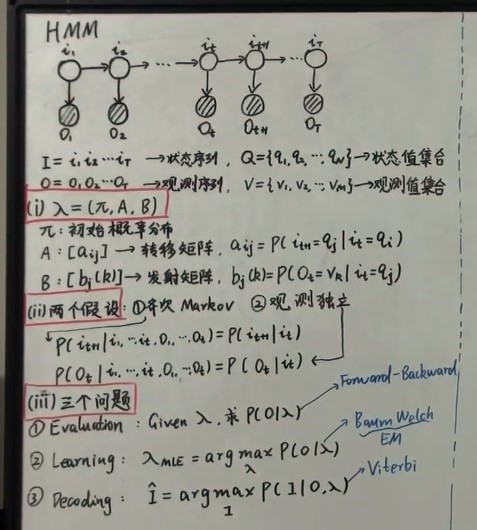 HMM
i₁ i₂ ... iₜ iₜ₊₁ ... i_T
O₁ O₂ Oₜ Oₜ₊₁ O_T
I = i₁ i₂ ... i_T → 状态序列, Q = {q₁, q₂, ..., q_N} → 状态值集合
O = O₁ O₂ ... O_T → 观测序列, V = {v₁, v₂, ..., v_M} → 观测值集合
(i) λ = (π, A, B)
π: 初始概率分布
A: [aᵢⱼ] → 转移矩阵, aᵢⱼ = P(iₜ₊₁ = qⱼ | iₜ = qᵢ)
B: [bⱼ(k)] → 发射矩阵, bⱼ(k) = P(Oₜ = vₖ | iₜ = qⱼ)
(ii) 两个假设: ① 齐次 Markov ② 观测独立
P(iₜ₊₁ | i₁, ... iₜ, O₁, ... Oₜ) = P(iₜ₊₁ | iₜ)
P(Oₜ | i₁, ... iₜ, O₁, ... Oₜ) = P(Oₜ | iₜ)
(iii) 三个问题
Forward-Backward
① Evaluation: Given λ, 求 P(O|λ)
Baum Welch
EM
② Learning: λ_MLE = arg max_λ P(O|λ)
Viterbi
③ Decoding: Î = arg max_I P(I | O, λ)